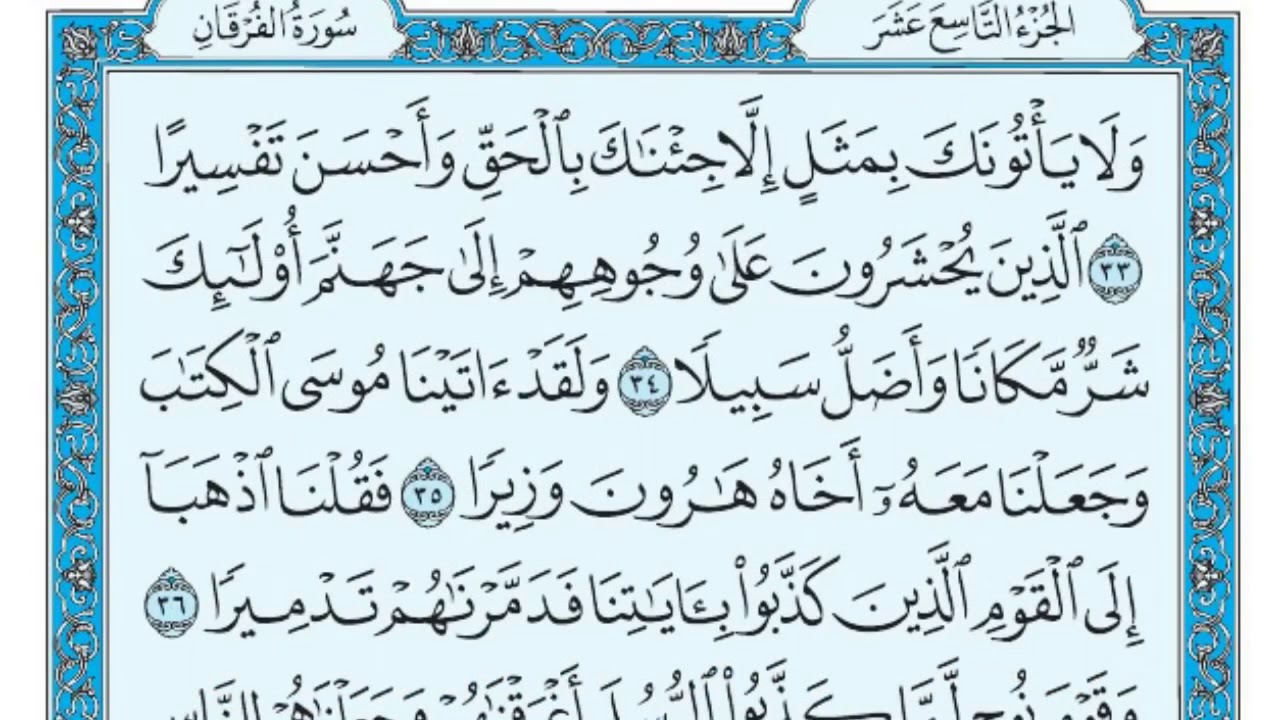 الجزء التاسع عشر
سورة الفرقان
وَلَا يَأْتُونَكَ بِمَثَلٍ إِلَّا جِئْنَٰكَ بِٱلْحَقِّ وَأَحْسَنَ تَفْسِيرًا
٣٣ ٱلَّذِينَ يُحْشَرُونَ عَلَىٰ وُجُوهِهِمْ إِلَىٰ جَهَنَّمَ أُو۟لَٰٓئِكَ
شَرٌّ مَّكَانًا وَأَضَلُّ سَبِيلًا ٣٤ وَلَقَدْ ءَاتَيْنَا مُوسَى ٱلْكِتَٰبَ
وَجَعَلْنَا مَعَهُۥٓ أَخَاهُ هَٰرُونَ وَزِيرًا ٣٥ فَقُلْنَا ٱذْهَبَآ
إِلَى ٱلْقَوْمِ ٱلَّذِينَ كَذَّبُوا۟ بِـَٔايَٰتِنَا فَدَمَّرْنَٰهُمْ تَدْمِيرًا ٣٦
وَقَوْمَ نُوحٍ لَّمَّا كَذَّبُوا۟ ٱلرُّسُلَ أَغْرَقْنَٰهُمْ وَجَعَلْنَٰهُمْ لِلنَّاسِ